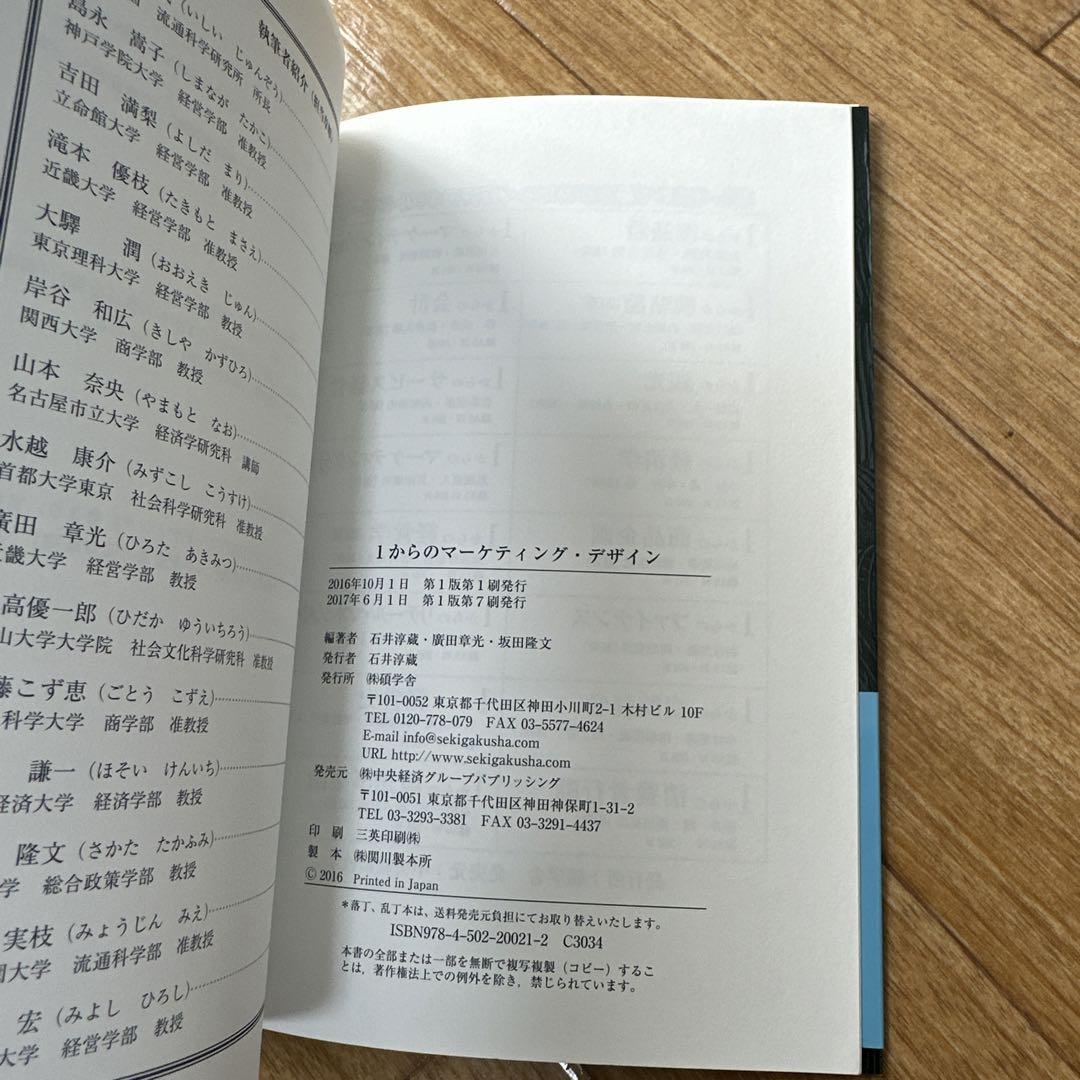 執筆者紹介
（いしい　じゅんぞう）
流通科学研究所　所長
島永　嵩子（しまなが　たかこ）
神戸学院大学　経営学部　准教授
吉田　満梨（よしだ　まり）
立命館大学　経営学部　准教授
滝本　優枝（たきもと　まさえ）
近畿大学　経営学部　准教授
大驛　潤（おおえき　じゅん）
東京理科大学　経営学部　教授
岸谷　和広（きしや　かずひろ）
関西大学　商学部　教授
山本　奈央（やまもと　なお）
名古屋市立大学　経済学研究科　講師
水越　康介（みずこし　こうすけ）
首都大学東京　社会科学研究科　准教授
廣田　章光（ひろた　あきみつ）
近畿大学　経営学部　教授
高優一郎（ひだか　ゆういちろう）
山大学大学院　社会文化科学研究科　准教授
藤こず恵（ごとう　こずえ）
科学大学　商学部　准教授
謙一（ほそい　けんいち）
経済大学　経済学部　教授
隆文（さかた　たかふみ）
学　総合政策学部　教授
実枝（みょうじん　みえ）
大学　流通科学部　准教授
宏（みよし　ひろし）
大学　経営学部　教授
1からのマーケティング・デザイン
2016年10月1日　第1版第1刷発行
2017年6月1日　第1版第7刷発行
編著者　石井淳蔵・廣田章光・坂田隆文
発行者　石井淳蔵
発行所　㈱碩学舎
〒101-0052 東京都千代田区神田小川町2-1 木村ビル 10F
TEL 0120-778-079　FAX 03-5577-4624
E-mail info@sekigakusha.com
URL http://www.sekigakusha.com
発売元　㈱中央経済グループパブリッシング
〒101-0051 東京都千代田区神田神保町1-31-2
TEL 03-3293-3381　FAX 03-3291-4437
印　刷　三英印刷㈱
製　本　㈱関川製本所
Ⓒ 2016　Printed in Japan
＊落丁、乱丁本は、送料発売元負担にてお取り替えいたします。
ISBN978-4-502-20021-2　C3034
本書の全部または一部を無断で複写複製（コピー）するこ
とは、著作権法上での例外を除き、禁じられています。